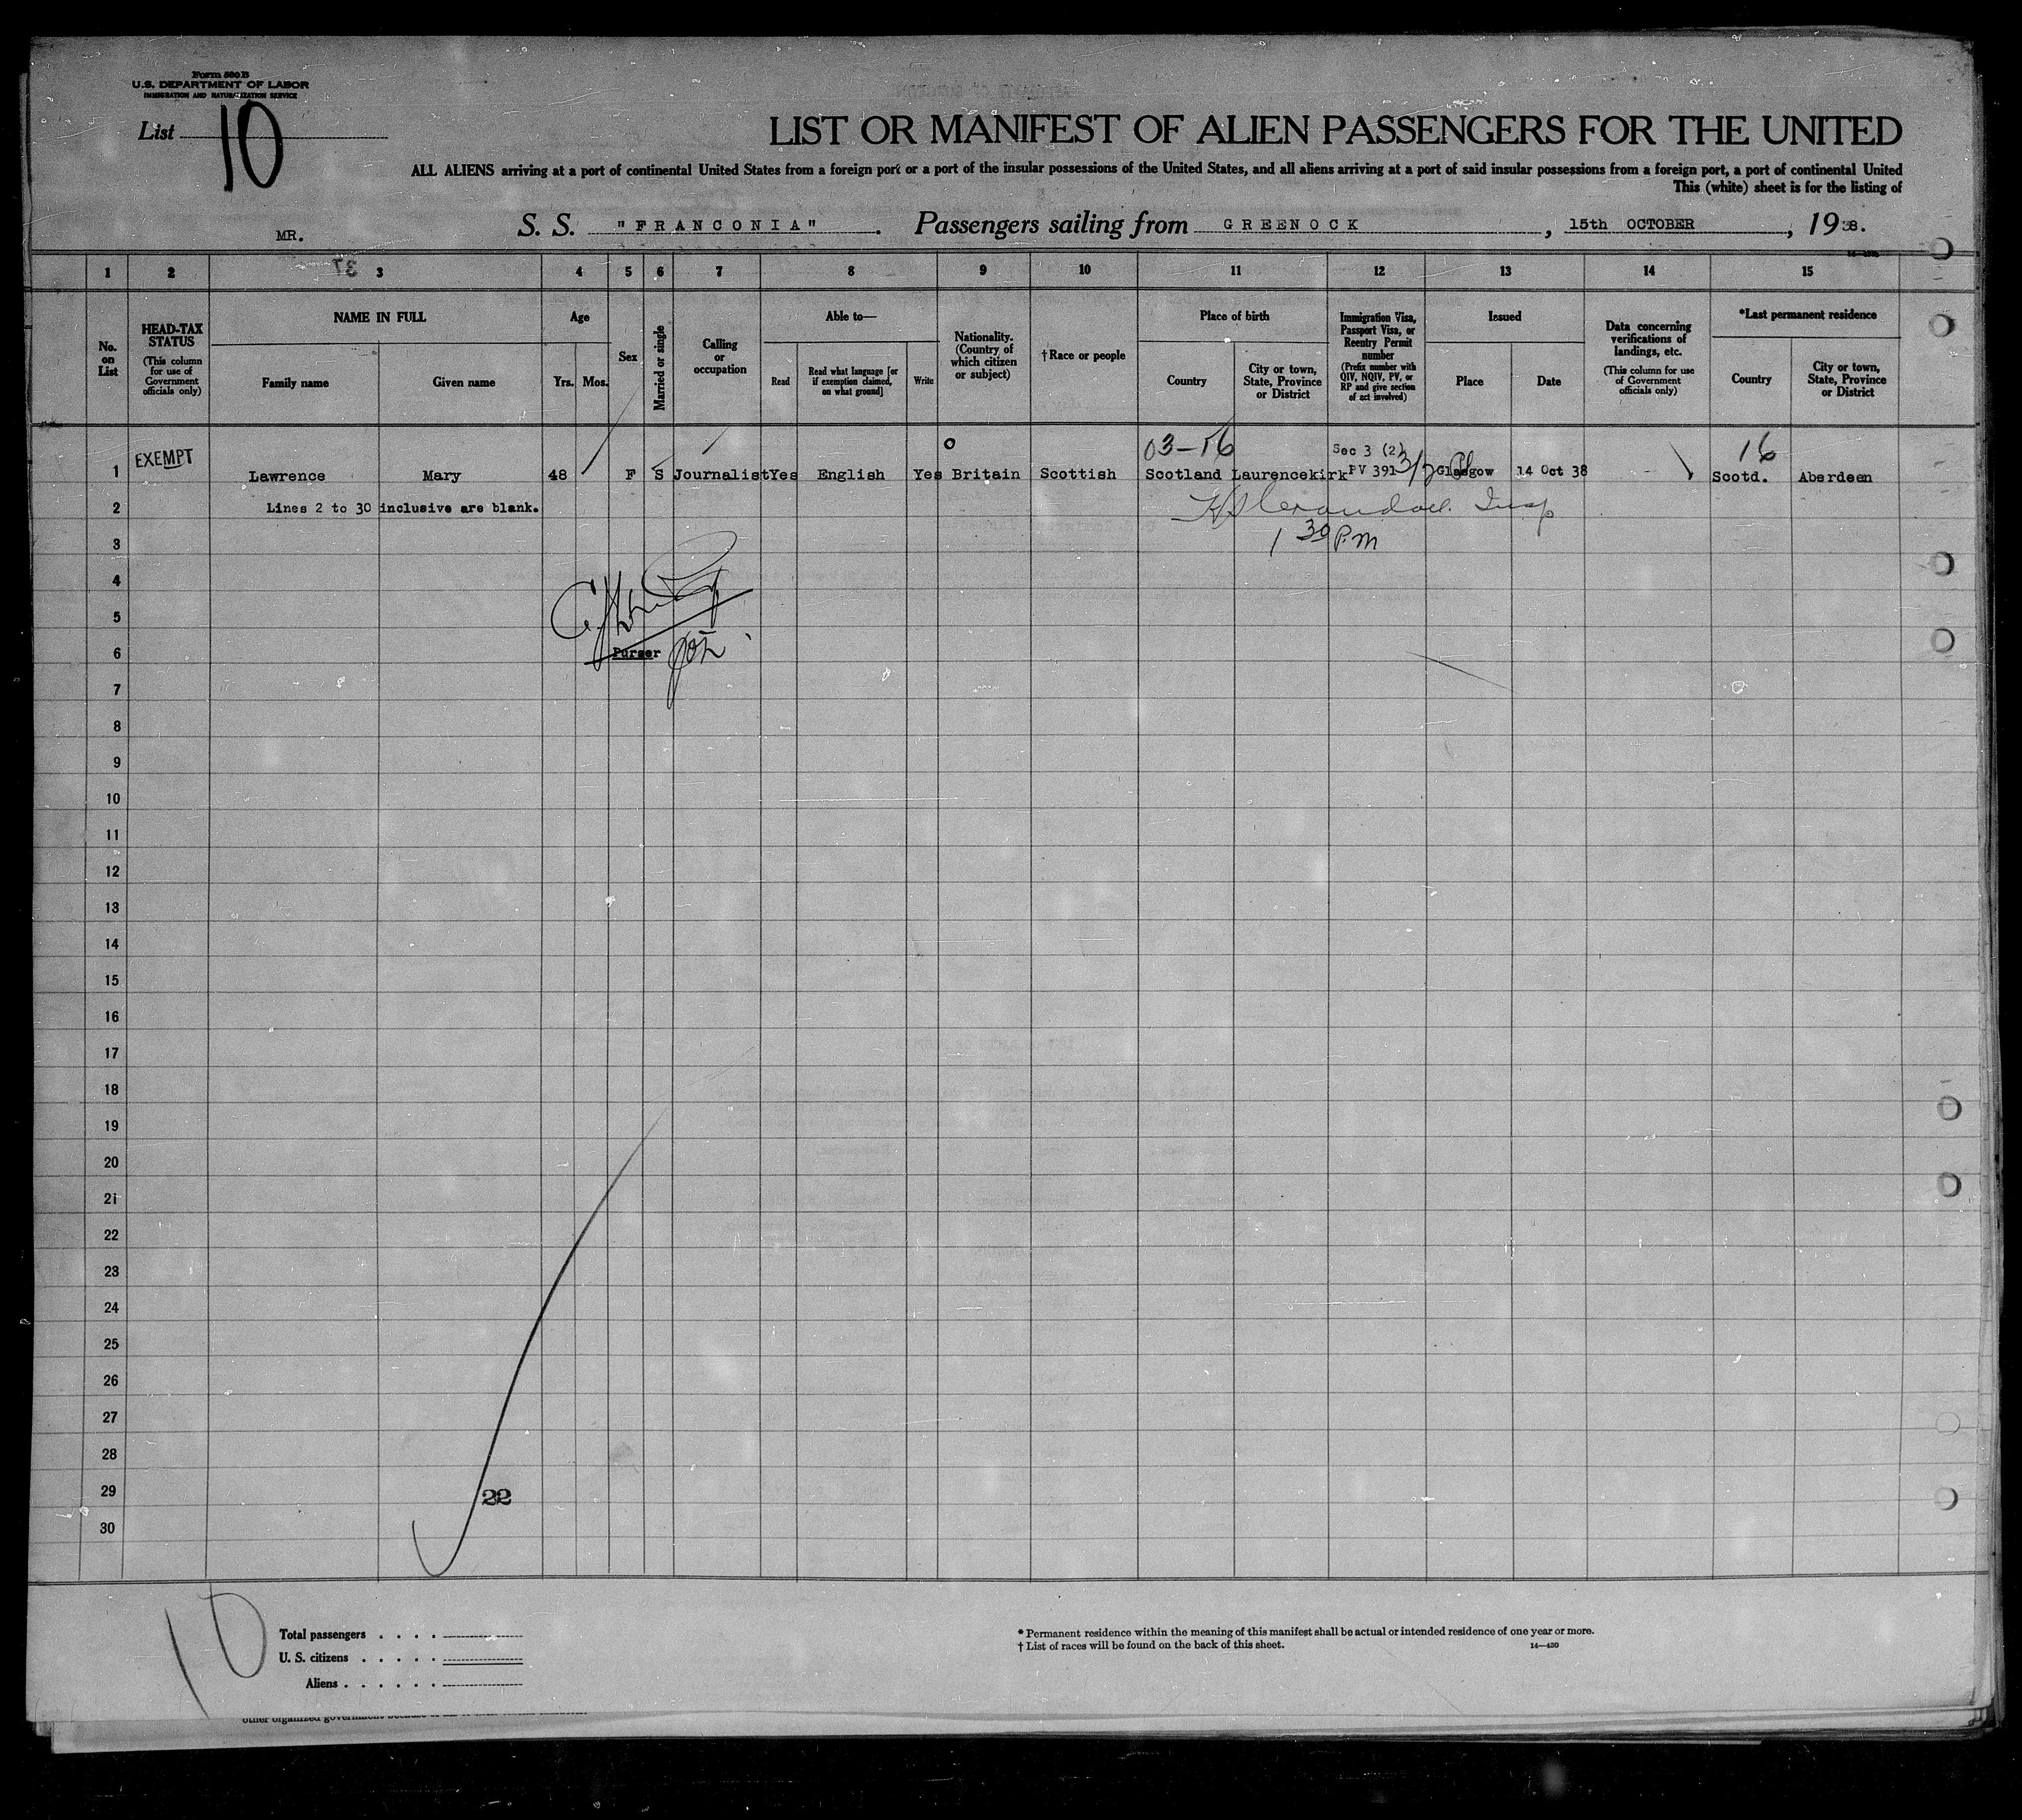 Form 500 B
U.S. DEPARTMENT OF LABOR
IMMIGRATION AND NATURALIZATION SERVICE
List 10
LIST OR MANIFEST OF ALIEN PASSENGERS FOR THE UNITED
ALL ALIENS arriving at a port of continental United States from a foreign port or a port of the insular possessions of the United States, and all aliens arriving at a port of said insular possessions from a foreign port, a port of continental United
This (white) sheet is for the listing of
MR. S. S. "FRANCONIA". Passengers sailing from GREENOCK, 15th OCTOBER, 1938.
1 2 37 3 4 5 6 7 8 9 10 11 12 13 14 15
No. on List
HEAD-TAX STATUS (This column for use of Government officials only)
NAME IN FULL
Family name Given name
Age
Yrs. Mos.
Sex
Married or single
Calling or occupation
Able to—
Read Read what language [or if exemption claimed, on what ground] Write
Nationality. (Country of which citizen or subject)
†Race or people
Place of birth
Country City or town, State, Province or District
Immigration Visa, Passport Visa, or Reentry Permit number (Prefix number with QIV, NQIV, PV, or RP and give section of act involved)
Issued
Place Date
Data concerning verifications of landings, etc. (This column for use of Government officials only)
*Last permanent residence
Country City or town, State, Province or District
03-16 Sec 3 (2) 16
1 EXEMPT Lawrence Mary 48 F S Journalist Yes English Yes Britain Scottish Scotland Laurencekirk PV 391 Glasgow 14 Oct 38 Scotd. Aberdeen
2 Lines 2 to 30 inclusive are blank. Insp
3 1 30 P.M
4
5
6 Purser
7
8
9
10
11
12
13
14
15
16
17
18
19
20
21
22
23
24
25
26
27
28
29 22
30
10
Total passengers . . . .
U. S. citizens . . . . .
Aliens . . . . . .
* Permanent residence within the meaning of this manifest shall be actual or intended residence of one year or more.
† List of races will be found on the back of this sheet. 14—430